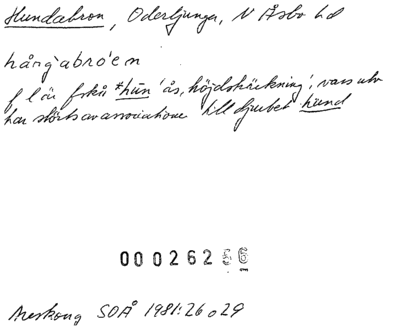 Hundabron, Oderljunga, N Åsbo hd
hång̀abró'en
f l är fskå *hūn 'ås, höjdsträckning', vars utv
har störts av associationer till djuret hund
000262
Areskoug SOÅ 1981:26 o 29